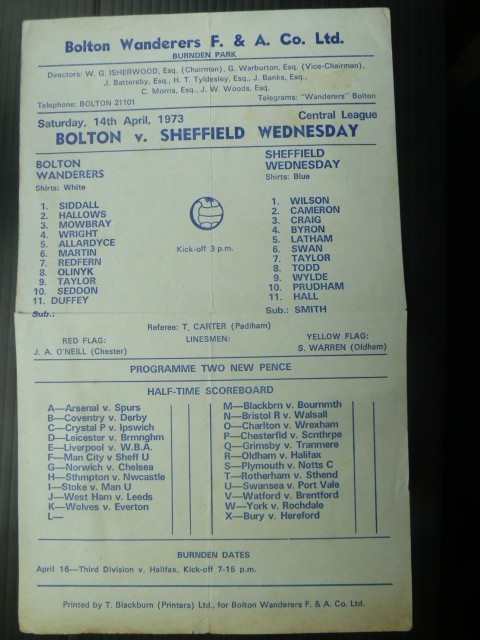 Bolton Wanderers F. & A. Co. Ltd.
BURNDEN PARK
Directors: W. G. ISHERWOOD, Esq. (Chairman), G. Warburton, Esq. (Vice-Chairman),
J. Battersby, Esq., H. T. Tyldesley, Esq., J. Banks, Esq.,
C. Morris, Esq., J. W. Woods, Esq.
Telephone: BOLTON 21101
Telegrams: "Wanderers" Bolton
Saturday, 14th April, 1973
Central League
BOLTON v. SHEFFIELD WEDNESDAY
BOLTON
WANDERERS
Shirts: White
1. SIDDALL
2. HALLOWS
3. MOWBRAY
4. WRIGHT
5. ALLARDYCE
6. MARTIN
7. REDFERN
8. OLINYK
9. TAYLOR
10. SEDDON
11. DUFFEY
Sub.:
Kick-off 3 p.m.
SHEFFIELD
WEDNESDAY
Shirts: Blue
1. WILSON
2. CAMERON
3. CRAIG
4. BYRON
5. LATHAM
6. SWAN
7. TAYLOR
8. TODD
9. WYLDE
10. PRUDHAM
11. HALL
Sub.: SMITH
Referee: T. CARTER (Padiham)
RED FLAG:
LINESMEN:
YELLOW FLAG:
J. A. O'NEILL (Chester)
S. WARREN (Oldham)
PROGRAMME TWO NEW PENCE
HALF-TIME SCOREBOARD
A—Arsenal v. Spurs
B—Coventry v. Derby
C—Crystal P v. Ipswich
D—Leicester v. Brmnghm
E—Liverpool v. W.B.A.
F—Man City v Sheff U
G—Norwich v. Chelsea
H—Sthmpton v. Nwcastle
I—Stoke v. Man U
J—West Ham v. Leeds
K—Wolves v. Everton
L—
M—Blackbrn v. Bournmth
N—Bristol R v. Walsall
O—Charlton v. Wrexham
P—Chesterfld v. Scnthrpe
Q—Grimsby v. Tranmere
R—Oldham v. Halifax
S—Plymouth v. Notts C
T—Rotherham v. Sthend
U—Swansea v. Port Vale
V—Watford v. Brentford
W—York v. Rochdale
X—Bury v. Hereford
BURNDEN DATES
April 16—Third Division v. Halifax, Kick-off 7-15 p.m.
Printed by T. Blackburn (Printers) Ltd., for Bolton Wanderers F. & A. Co. Ltd.